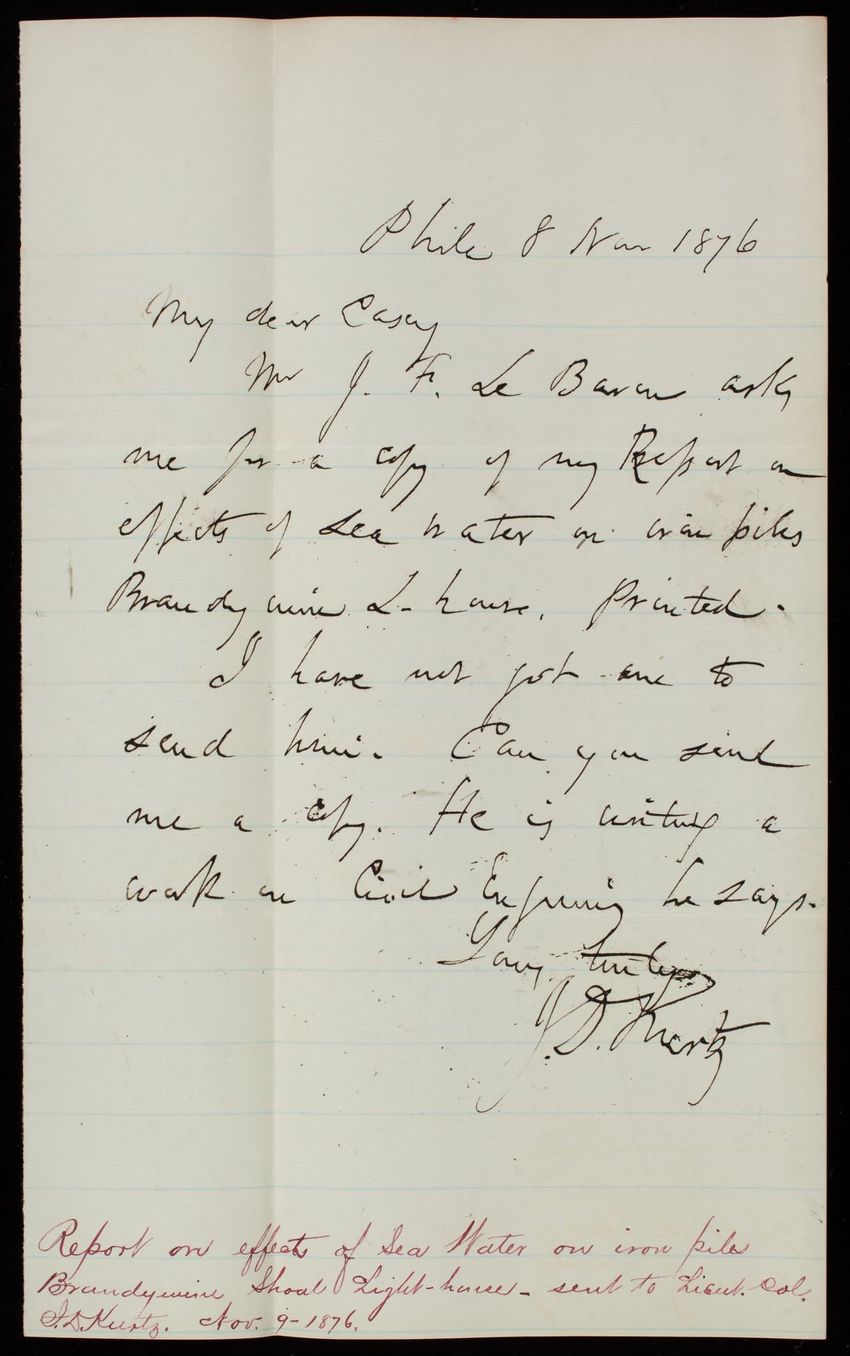 Phila 8 Nov 1876
My dear Casey
Mr J. F. Le Baron asks
me for a copy of my Report on
effects of sea water on iron piles
Brandywine L-house. Printed.
I have not got one to
send him. Can you send
me a copy. He is writing a
work on Civil he says.
Yours truly
J. D. Kurtz
Report on effects of Sea Water on iron piles
Brandywine Shoal Light-house - sent to Lieut. Col.
J.D. Kurtz. Nov. 9-1876.